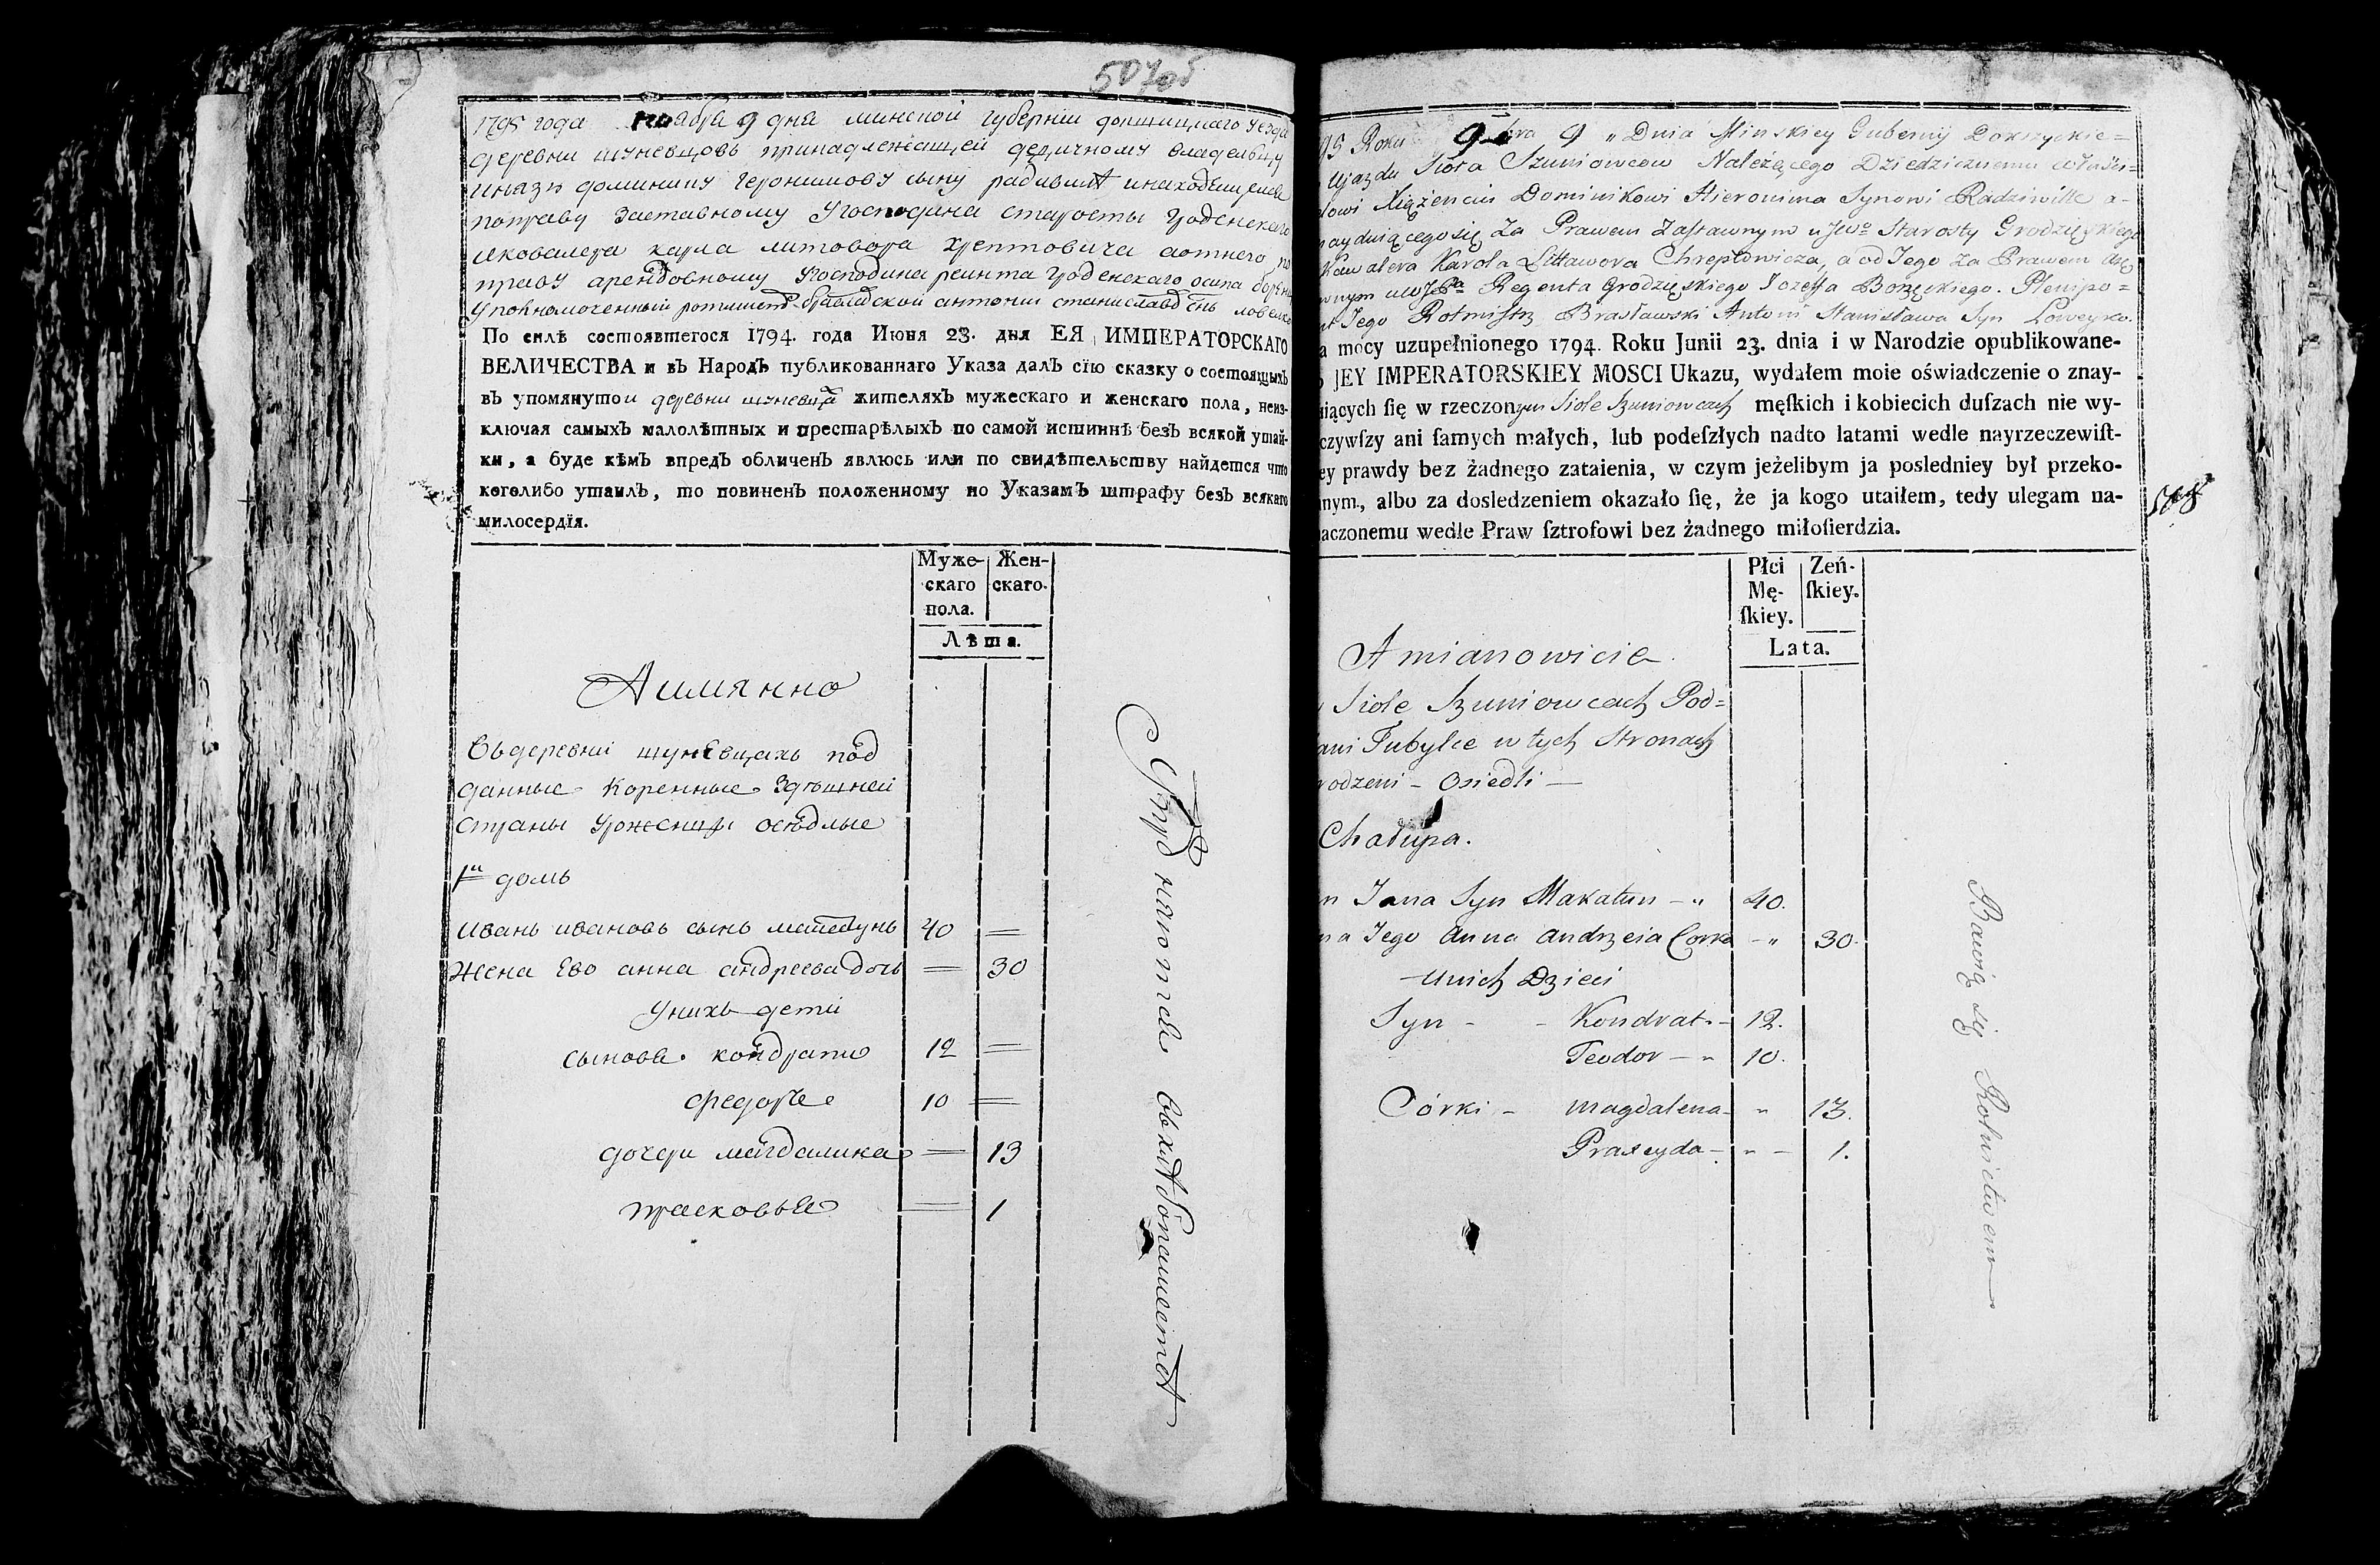 507об
1795 года ноября 9 дня минской губернии докшицкаго уезда
деревни шуневцовъ принадлежащей дедичному владельцу
князю доминику геронимову сыну радивилу инаходящеися
поправу заставному Угосподина старосты гродненскаго
икавалера карла литовора хрептовича аотнего по
праву арендовному Угосподина реента гродненскаго осипа
Уполномоченный ротмистръ браславской антонии станиславовъ сынъ ловейко
По силѣ состоявшегося 1794. года Июня 23. дня ЕЯ ИМПЕРАТОРСКАГО
ВЕЛИЧЕСТВА и въ Народъ публикованнаго Указа далъ сїю сказку о состоящихъ
въ упомянутои деревни шуневцахъ жителяхъ мужескаго и женскаго пола, неиз-
ключая самыхъ малолѣтныхъ и престарѣлыхъ по самой истиннѣ безъ всякой утай-
ки, а буде кѣмъ впредъ обличенъ явлюсь или по свидѣтельству найдется что
коголибо утаилъ, то повиненъ положенному по Указамъ штрафу безъ всякаго
милосердїя.
Муже-
скаго
пола.
Жен-
скаго.
Лѣта.
Аимянно
Въдеревни шуневцахъ под
данные коренные здешней
страны уроженцы оседлые
1й домъ
Иванъ ивановъ сынъ 40 =
Жена Ево анна андреева дочь = 30
Унихъ дети
сыновя кондрати 12 =
федоръ 10 =
дочери магдалина = 13
прасковья = 1
Упражняются въхлебопашестве
95 Roku 9bra 9 „ Dnia Minskiey Gubernij Dokszyckie=
Ujazdu Sioła Szuniowcow Należącego Dziedzicznemu właści=
lowi Xiążenciu Dominikowi Hieronima Synowi Radziwille a=
nayduiącego się za Prawem Zastawnym u JWo Starosty Grodzięskiego
Kawalera Karola Littawora Chreptowicza, a od Jego za Prawem
wnym Regenta Grodzięskiego Jozeffa Borzęckiego. Plenipo=
nt Jego Rotmistrz Brasławski Antoni Stanisława Syn Łoweyko.
a mocy uzupełnionego 1794. Roku Junii 23. dnia i w Narodzie opublikowane-
o JEY IMPERATORSKIEY MOSCI Ukazu, wydałem moie oświadczenie o znay-
uiących ſię w rzeczonym Siole Szuniowcach męſkich i kobiecich duſzach nie wy-
czywſzy ani ſamych małych, lub podeſzłych nadto latami wedle nayrzeczewiſt-
ey prawdy bez żadnego zataienia, w czym jeżelibym ja posledniey był przeko-
nym, albo za dosledzeniem okazało ſię, że ja kogo utaiłem, tedy ulegam na-
aczonemu wedle Praw ſztrofowi bez żadnego miłoſierdzia.
508
Płci
Mę-
ſkiey.
Zeń-
ſkiey.
Lata.
Amianowicie.
Siole Szuniowcach Pod=
ani Tubylce w tych Stronach
rodzeni – Osiedli –
Chałupa.
n Jana Syn Makatun – „ 40.
na Jego Anna Andrzeia Corka – „ 30.
Unich Dzieci
Syn – – Kondrat – 12.
Teodor – „ 10.
Córki – Magdalena – „ 13.
Praxeyda – „ – 1.
Bawią się Rolnictwem